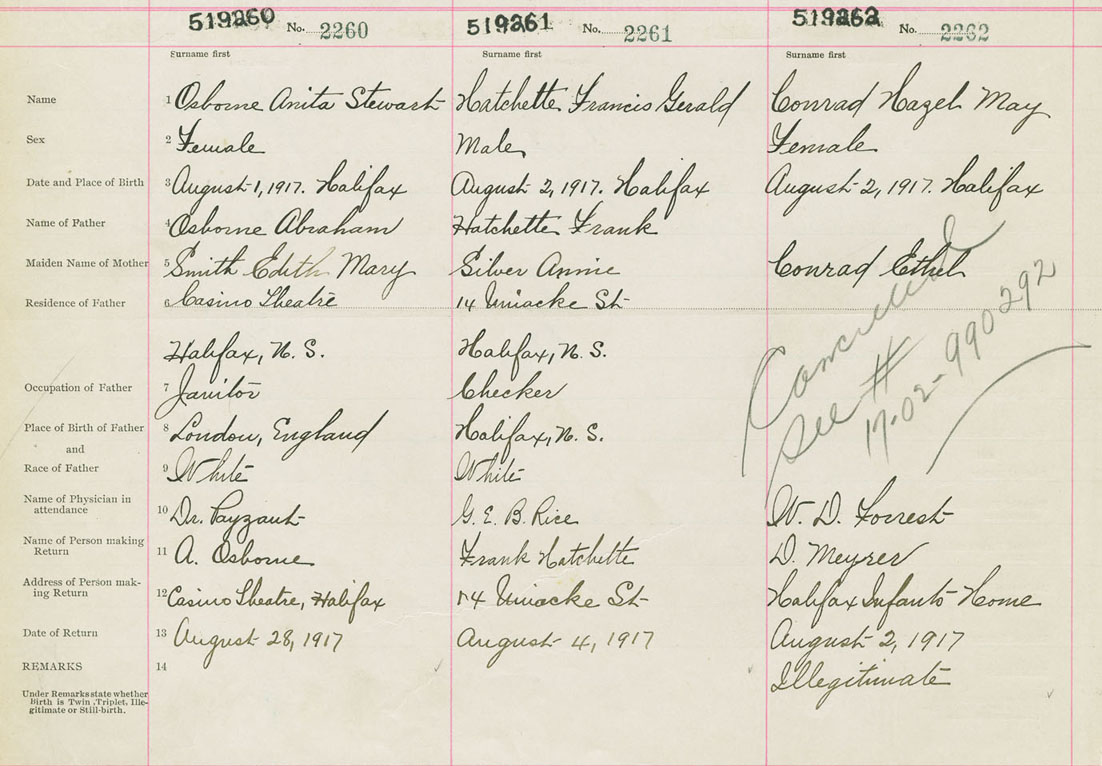 519260 No. 2260 519261 No. 2261 519262 No. 2262
Surname first Surname first Surname first
Name 1 Osborne Anita Stewart Hatchette Francis Gerald Conrad Hazel May
Sex 2 Female Male Female
Date and Place of Birth 3 August 1, 1917. Halifax August 2, 1917. Halifax August 2, 1917. Halifax
Name of Father 4 Osborne Abraham Hatchette Frank
Maiden Name of Mother 5 Smith Edith Mary Silver Annie Conrad Ethel
Residence of Father 6 Casino Theatre 14 Uniacke St
Halifax, N. S. Halifax, N. S.
Cancelled
See #
17-02-990292
Occupation of Father 7 Janitor Checker
Place of Birth of Father 8 London, England Halifax, N. S.
and
Race of Father 9 White White
Name of Physician in
attendance 10 Dr. Payzant G. E. B. Rice W. D. Forrest
Name of Person making
Return 11 A. Osborne Frank Hatchette D. Meyrer
Address of Person mak-
ing Return 12 Casino Theatre, Halifax 14 Uniacke St Halifax Infants Home
Date of Return 13 August 28, 1917 August 4, 1917 August 2, 1917
REMARKS 14 Illegitimate
Under Remarks state whether
Birth is Twin, Triplet, Ille-
gitimate or Still-birth.